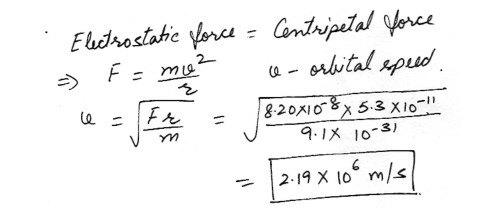 Electrostatic force = Centripetal force
⇒ F = mv²/r v - orbital speed.
v = √(Fr/m) = √(8.20×10⁻⁸ × 5.3 ×10⁻¹¹ / 9.1× 10⁻³¹)
= 2.19 × 10⁶ m/s